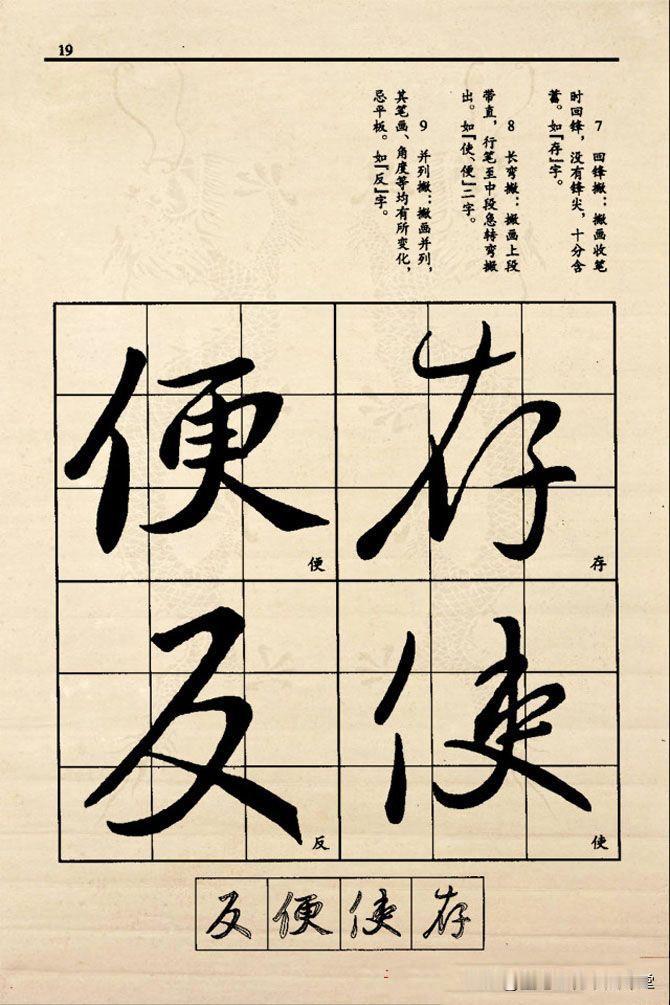 19
7 回锋撇：撇画收笔
时回锋，没有锋尖，十分含
蓄。如『存』字。
8 长弯撇：撇画上段
带直，行笔至中段急转弯撇
出。如『使、便』二字。
9 并列撇：撇画并列，
其笔画、角度等均有所变化，
忌平板。如『反』字。
存
存
使
使
便
便
反
反
存使便反